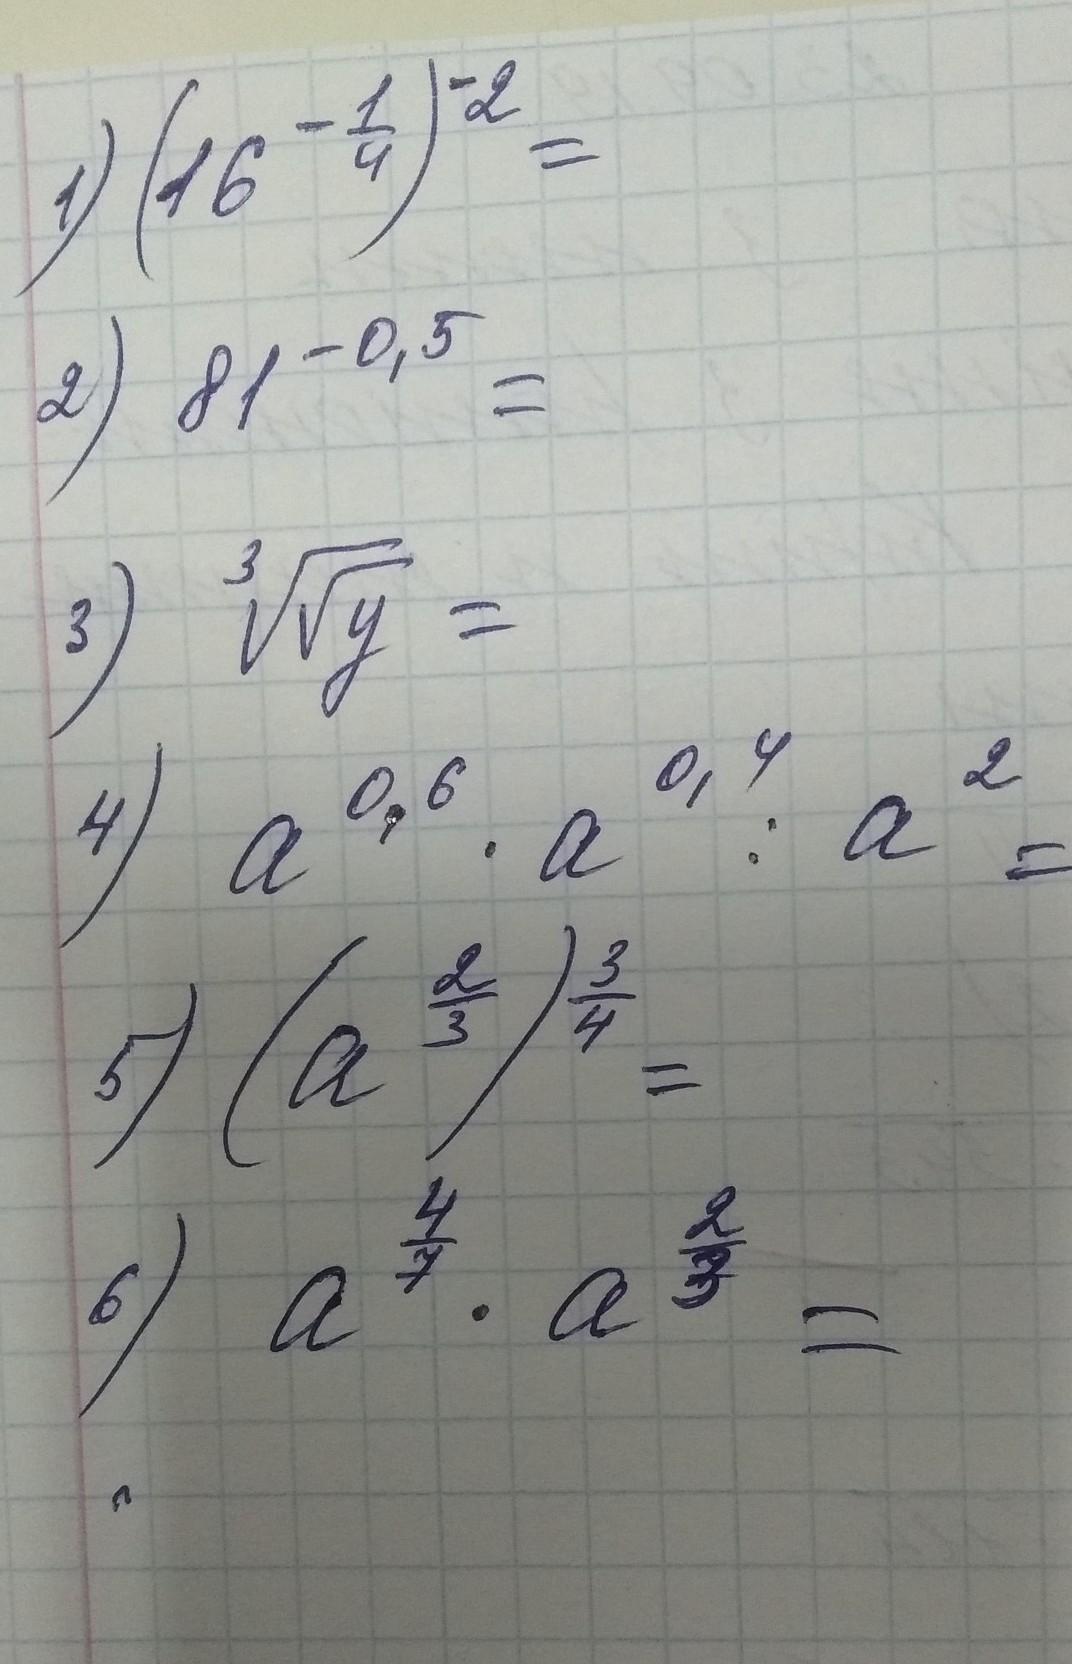 1) (16^{-\frac{1}{4}})^{-2} =
2) 81^{-0,5} =
3) \sqrt[3]{\sqrt{y}} =
4) a^{0,6} · a^{0,4} : a^{2} =
5) (a^{\frac{2}{3}})^{\frac{3}{4}} =
6) a^{\frac{4}{7}} · a^{\frac{2}{3}} =